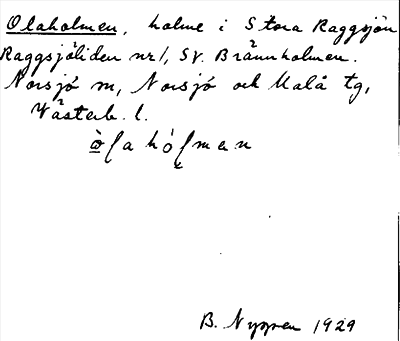 Olaholmen, holme i Stora Raggsjön
Raggsjöliden nr 1, SV. Brännholmen.
Norsjö sn, Norsjö och Malå tg,
Västerb. l.
òlahólmen
B. Nygren 1929